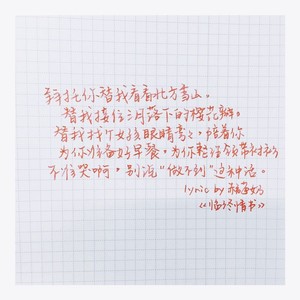 拜托你替我看看北方雪山。
替我接住三月落下的樱花瓣。
替我找个女孩眼睛弯弯,陪着你
为你准备好早餐,为你整经领带衬衫
不准哭啊,别说“做不到”这种话。
lyric by 苏莎妫
《临终情书》